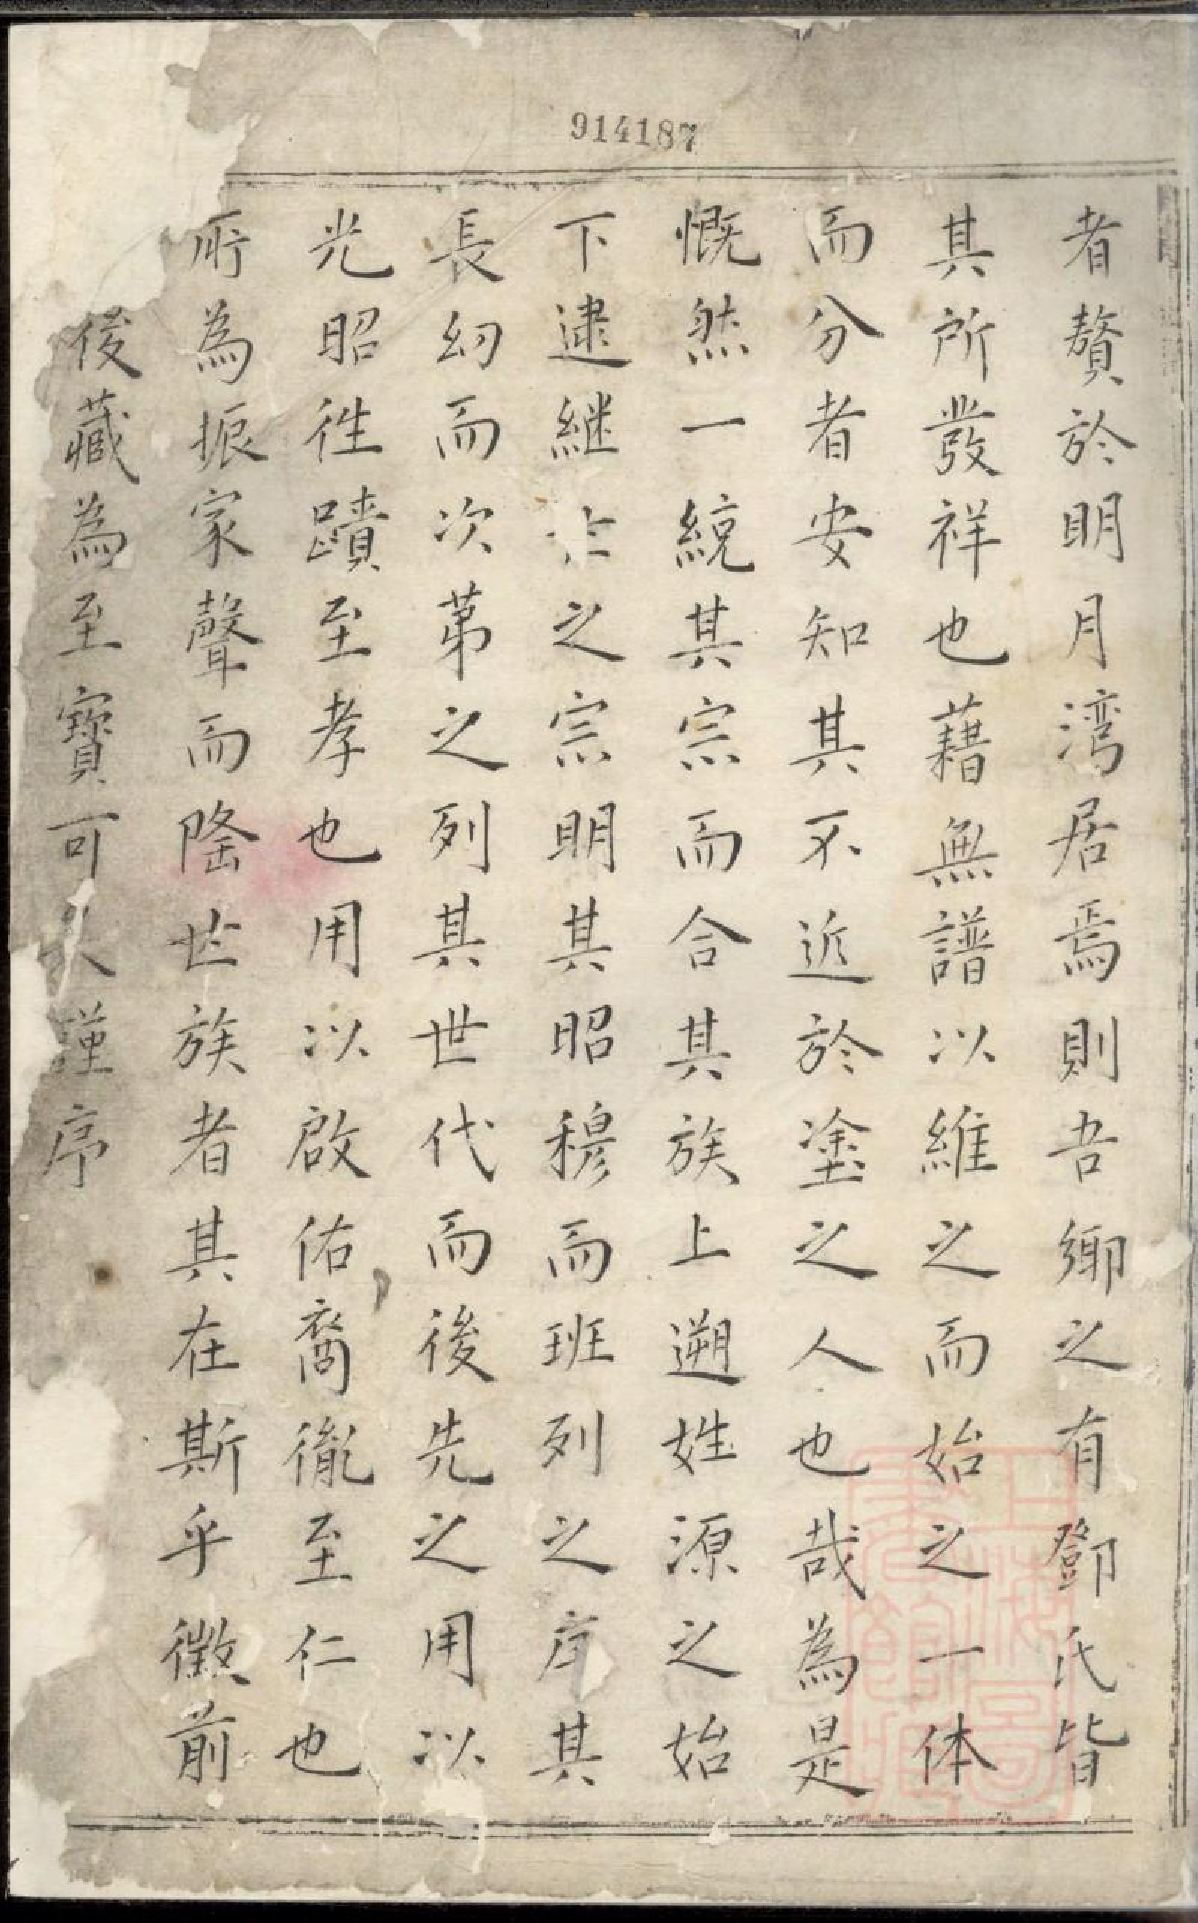 914187
者贅於明月湾居焉則吾鄉之有鄧氏皆
其所發祥也藉無譜以維之而始之一体
而分者安知其不近於塗之人也哉為是
慨然一統其宗而合其族上遡姓源之始
下逮継之宗明其昭穆而班列之序其
長幼而次第之列其世代而後先之用以
光昭徃蹟至孝也用以啟佑裔胤至仁也
所為振家聲而隆世族者其在斯乎徵前
後藏為至寶可謹序
上海圖書館藏